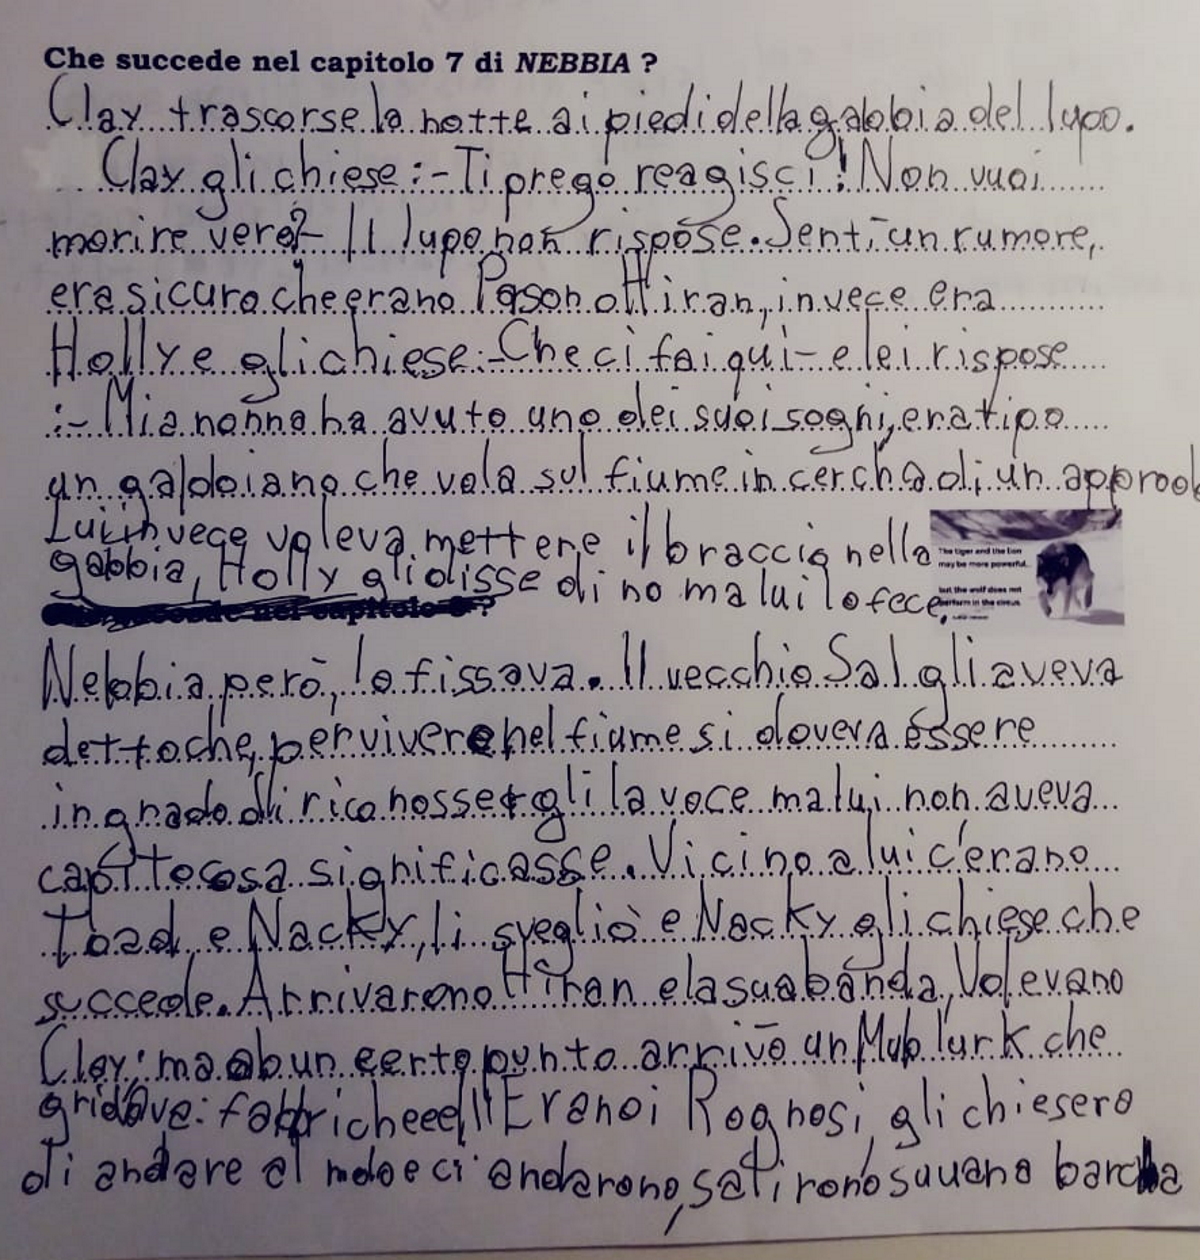 Che succede nel capitolo 7 di NEBBIA ?
Clay trascorse la notte ai piedi della gabbia del lupo.
Clay gli chiese :- Ti prego reagisci! Non vuoi
morire vero?- Il lupo non rispose. Sentì un rumore,
era sicuro che erano Pason o Hiran, invece era
Holly e gli chiese:- Che ci fai qui- e lei rispose
:- Mia nonna ha avuto uno dei suoi sogni, era tipo
un gabbiano che vola sul fiume in cercha di un approd
Lui invece voleva mettere il braccio nella
gabbia, Holly gli disse di no ma lui lo fece,
The tiger and the lion
may be more powerful..
but the wolf does not
perform in the circus.
Nebbia però, lo fissava. Il vecchio Sal gli aveva
detto che, per vivere nel fiume si dovera essere
in grado di riconosser gli la voce ma lui non aveva
capito cosa significasse. Vicino a lui c'erano
Toad e Nacky, li svegliò e Nacky gli chiese che
succede. Arrivarono Hiran e la sua banda, Volevano
Clay, ma ab un certo punto arrivò un Mub lurk che
gridave: fabbricheee!! Erano i Rognosi, gli chiesero
di andare al molo e ci andarono, su una barcha